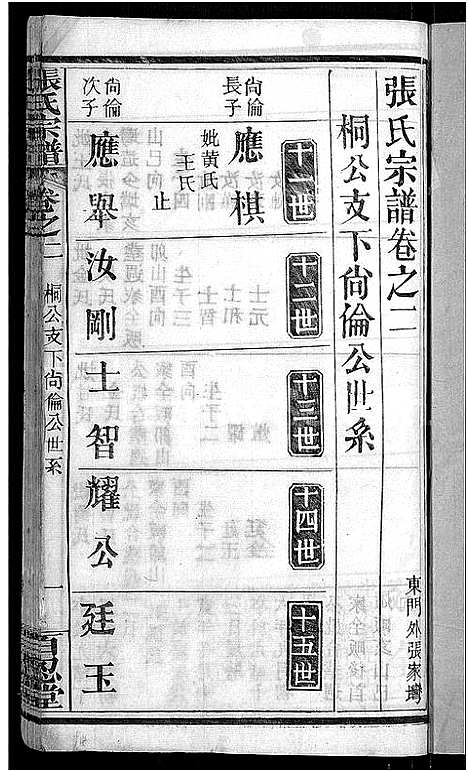 張氏宗譜卷之二
東門外張家灣
桐公支下尙倫公世系
十一世
十二世
十三世
十四世
十五世
尙倫長子
應棋
妣黄氏
王氏
止
尙倫次子
應舉
汝剛
士智
耀公
廷玉
張氏宗譜
卷之二
桐公支下尙倫公世系
一
百忍堂